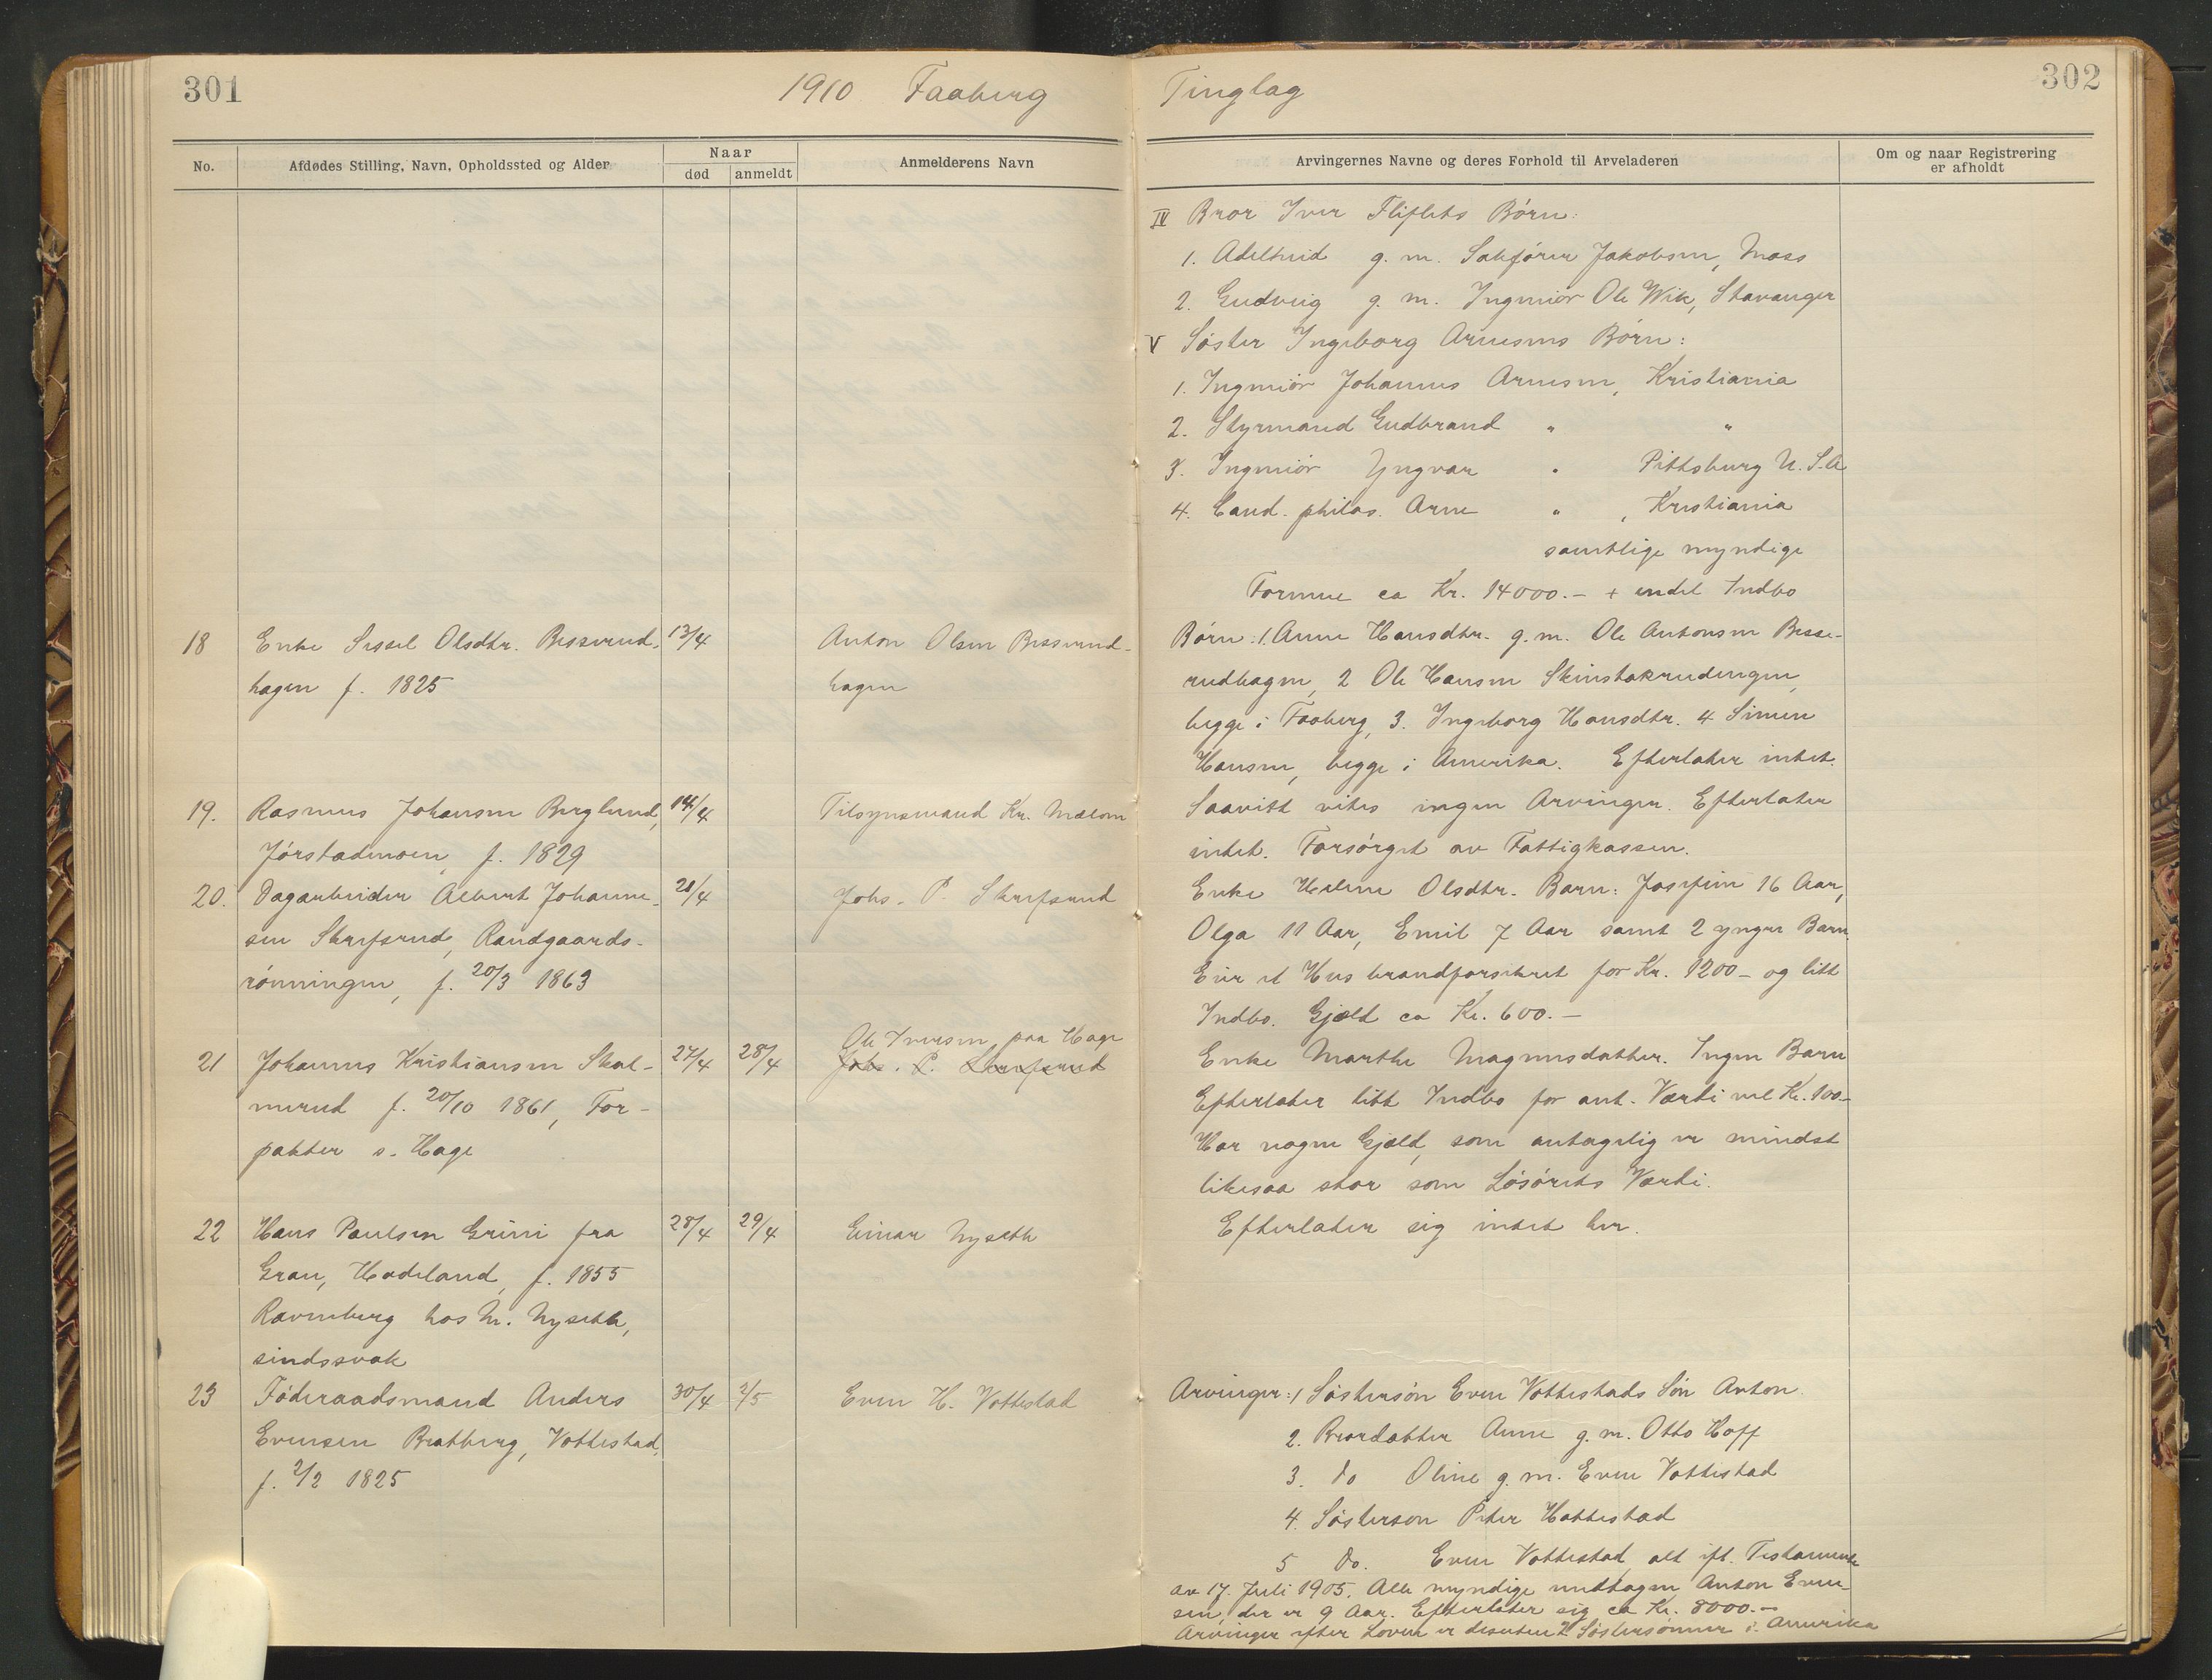 301
1910 Faaberg
No.
Afdødes Stilling, Navn, Opholdssted og Alder
Naar
død
anmeldt
Anmelderens Navn
18 Enke Sissel Olsdtr. Besserud- 13/4 Anton Olsen Besserud-
hagen f. 1825 hagen
19. Rasmus Johansen Berglund, 14/4 Tilsynsmand Kr. Mælom
Jørstadmoen, f. 1829
20. Dagarbeider Albert Johanne- 21/4 Johs. P. Skrefsrud
sen Skrefsrud, Randgaards-
rønningen, f. 20/3 1863
Ole Iversen paa Hage
21 Johannes Kristiansen Skal- 27/4 28/4 Johs. P. Skrefsrud
merud f. 20/10 1861, For-
pakter s. Hage
22 Hans Paulsen Grini fra 28/4 29/4 Einar Nyseth
Gran, Hadeland, f. 1855
Ravneberg hos N. Nyseth,
sindssvak
23 Føderaadsmand Anders 30/4 2/5 Even H. Vottestad
Evensen Bratberg, Vottestad,
f. 2/2 1825
Tinglag
302
Arvingernes Navne og deres Forhold til Arveladeren
Om og naar Registrering
er afholdt
IV Bror Iver Fliflets Børn:
1. Adelheid g. m. Sakfører Jakobsen, Moss
2. Gudveig g. m. Ingeniør Ole Wik, Stavanger
V Søster Ingeborg Arnesens Børn:
1. Ingeniør Johannes Arnesen, Kristiania
2. Styrmand Gudbrand " "
3. Ingeniør Yngvar " Pittsburg U.S.A
4. Cand. philos. Arne " , Kristiania
samtlige myndige
Formue ca Kr. 14000.- + endel Indbo
Børn: 1. Anne Hansdtr. g. m. Ole Antonsen Besse-
rudhagen, 2 Ole Hansen Skinstakrudengen,
begge i Faaberg, 3. Ingeborg Hansdtr. 4 Simen
Hansen, begge i Amerika. Efterlater intet.
Saavitt vites ingen Arvinger. Efterlater
intet. Forsørget av Fattigkassen.
Enke Helene Olsdtr. Barn: Josefine 16 Aar,
Olga 11 Aar, Emil 7 Aar samt 2 yngre Barn.
Eier et Hus brandforsikret for Kr. 1200- og litt
Indbo. Gjæld ca Kr. 600.-
Enke Marthe Magnusdatter. Ingen Barn
Efterlater litt Indbo for ant. Værdi vel Kr. 100.-
Har nogen Gjæld, som antagelig er mindst
likesaa stor som Løsørets Værdi.
Efterlater sig intet her.
Arvinger: 1 Søstersøn Even Vottestads Søn Anton.
2. Brordatter Anne g. m. Otto Hoff
3. do Oline g. m. Even Vottestad
4. Søstersøn Peter Hattestad
5 do. Even Vottestad, alt ifl. Testamente
av 17. Juli 1905. Alle myndige undtagen Anton Even-
sen, der er 9 Aar. Efterlater sig ca Kr. 8000.-
Arvinger efter Loven er desuten 2 Søstersønner i Amerika